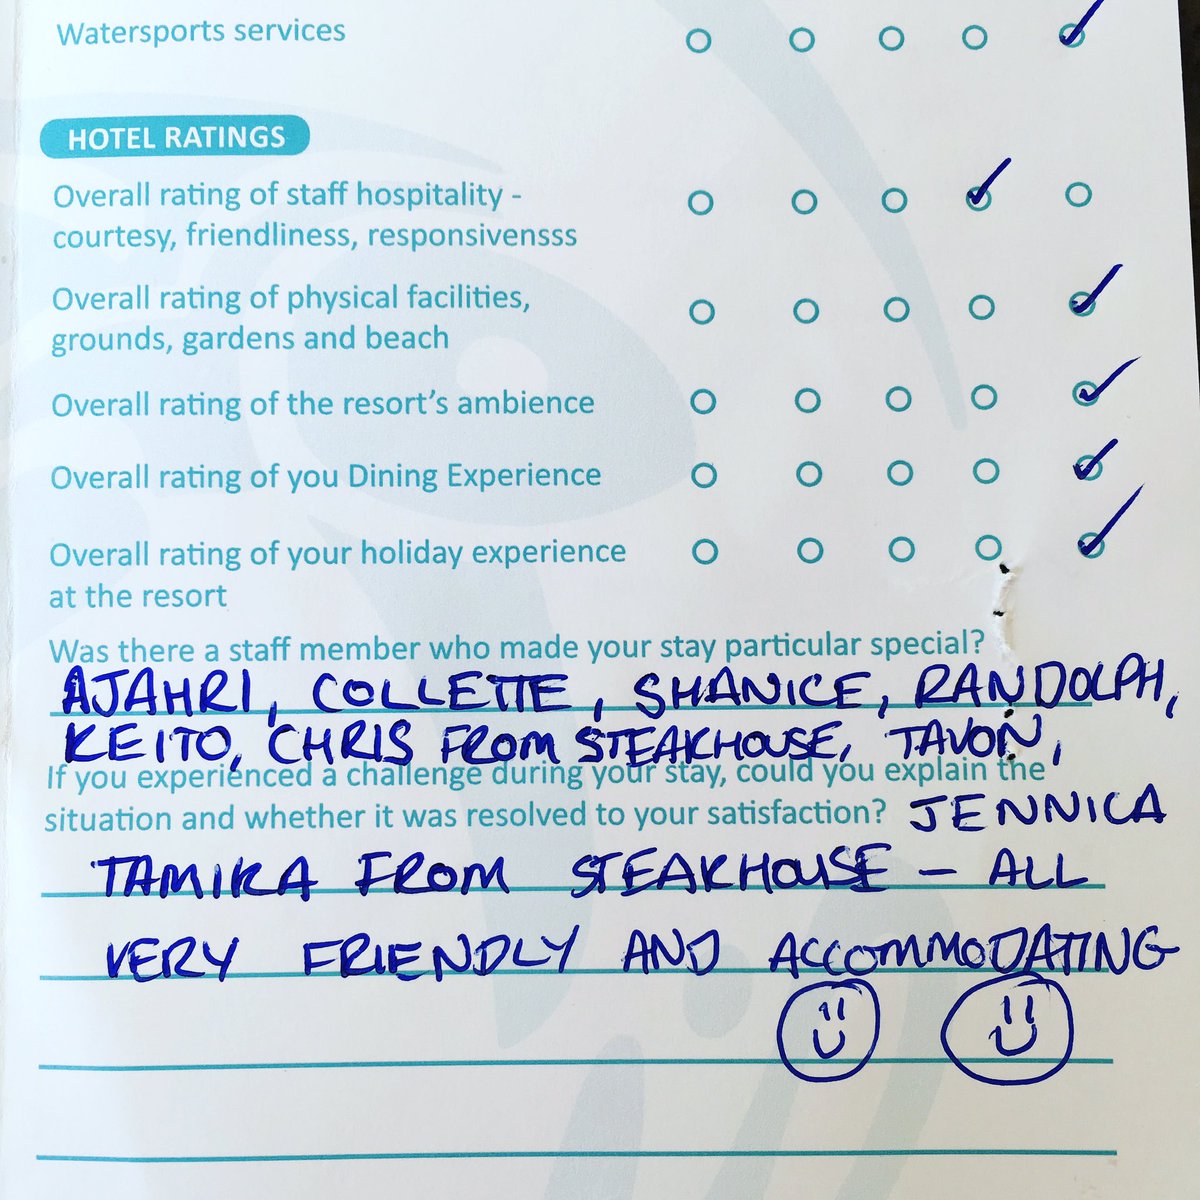 Watersports services
HOTEL RATINGS
Overall rating of staff hospitality -
courtesy, friendliness, responsivensss
Overall rating of physical facilities,
grounds, gardens and beach
Overall rating of the resort's ambience
Overall rating of you Dining Experience
Overall rating of your holiday experience
at the resort
Was there a staff member who made your stay particular special?
AJAHRI, COLLETTE, SHANICE, RANDOLPH,
KEITO, CHRIS FROM STEAKHOUSE, TAVON,
If you experienced a challenge during your stay, could you explain the
situation and whether it was resolved to your satisfaction? JENNICA
TAMIKA FROM STEAKHOUSE - ALL
VERY FRIENDLY AND ACCOMMODATING